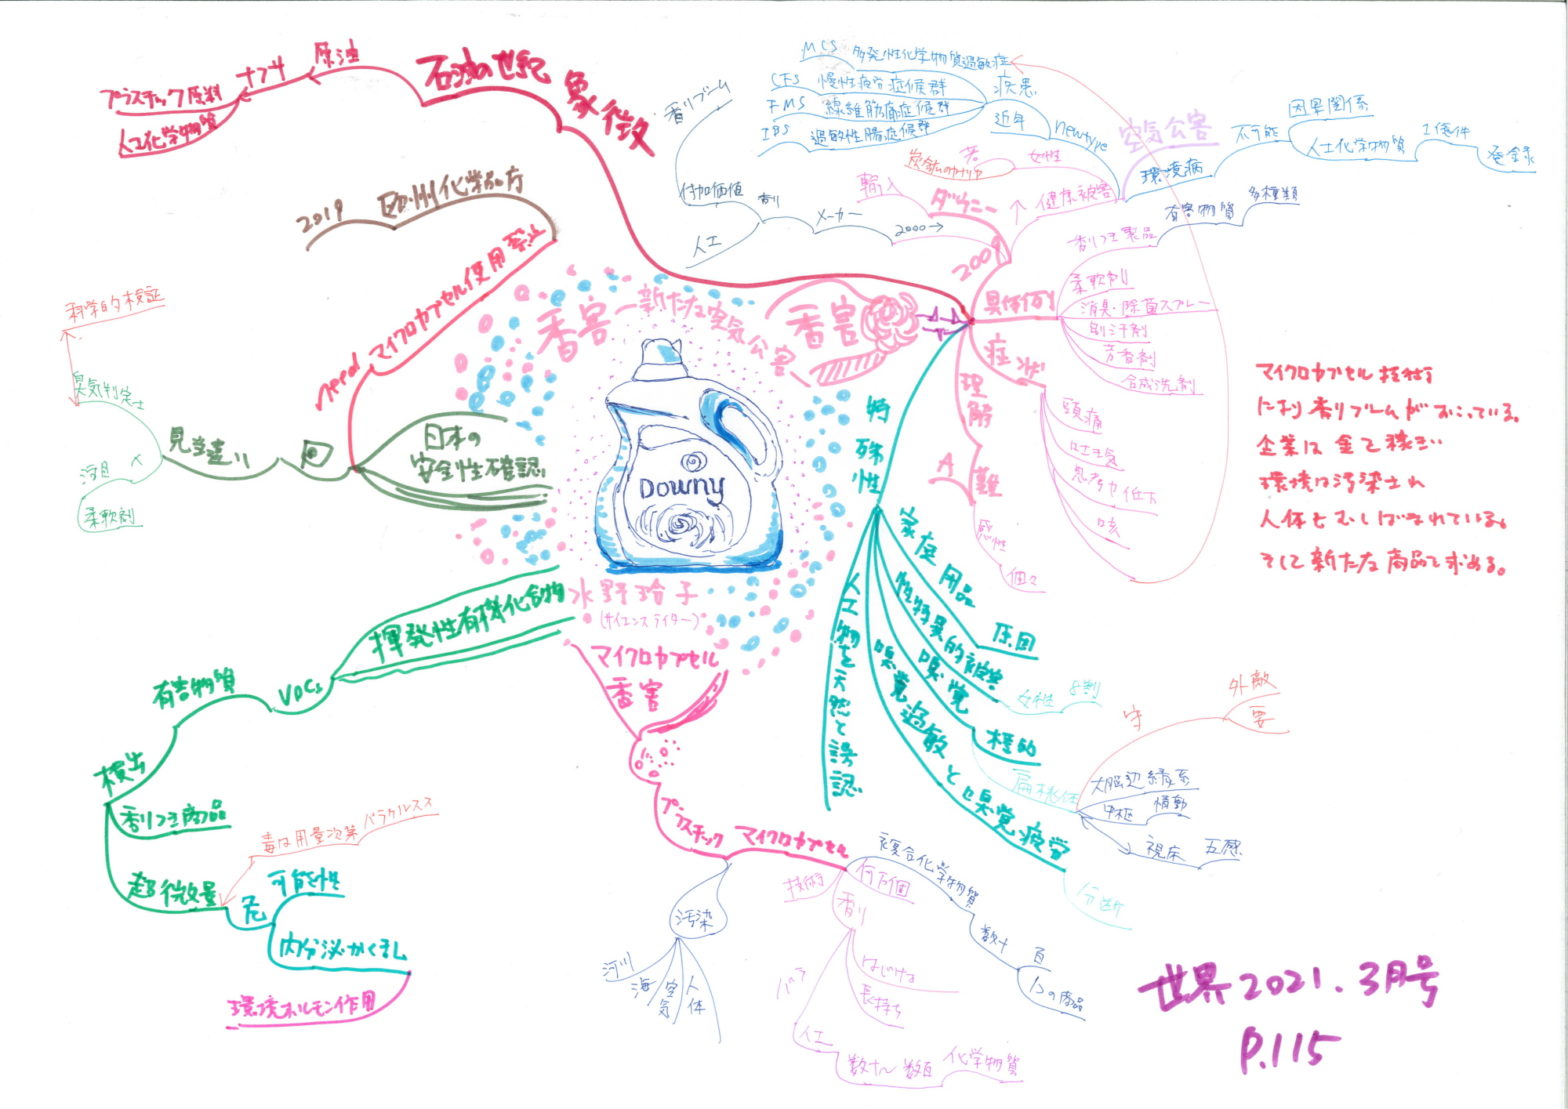 石油の世紀
象徴
原油
ナフサ
プラスチック原料
人工化学物質
欧州化学品庁
2019
マイクロカプセル使用禁止
need
日本の
安全性確認
見当違い
臭気判定士
科学的検証
柔軟剤
香害ー新たな空気公害
香害
Downy
水野玲子
(サイエンスライター)
MCS 多発性化学物質過敏症
CFS 慢性疲労症候群
FMS 線維筋痛症候群
IBS 過敏性腸症候群
疾患
近年
newtype
空気公害
環境病
不可能
因果関係
人工化学物質
1億件
登録
健康被害
女性
若
炭鉱のカナリヤ
香りブーム
付加価値
香り
人工
メーカー
2000→
輸入
ダウニー
2009
具体例
香りつき製品
有害物質
多種類
柔軟剤
消臭・除菌スプレー
制汗剤
芳香剤
合成洗剤
症状
頭痛
吐き気
思考力低下
咳
理解
難
感性
個々
特殊性
家庭用品
原因
性特異的被害
女性
8割
嗅覚
標的
扁桃体
守
外敵
大脳辺縁系
中枢
情動
視床
五感
嗅覚過敏と嗅覚疲労
分断
人工物を天然と誤認
マイクロカプセル技術
により香りブームがおこっている。
企業は金を稼ぎ
環境は汚染され
人体もむしばまれている。
そして新たな商品を求める。
揮発性有機化合物
VOCs
有害物質
検出
香りつき商品
超微量
毒は用量次第
パラケルスス
危
可能性
内分泌かく乱
環境ホルモン作用
マイクロカプセル
香害
プラスチック
マイクロカプセル
汚染
河川
海
空気
人体
技術
何万個
香り
はじける
長持ち
バラ
人工
数十〜数百
化学物質
複合化学物質
数十
百
1つの商品
世界2021.3月号
P.115